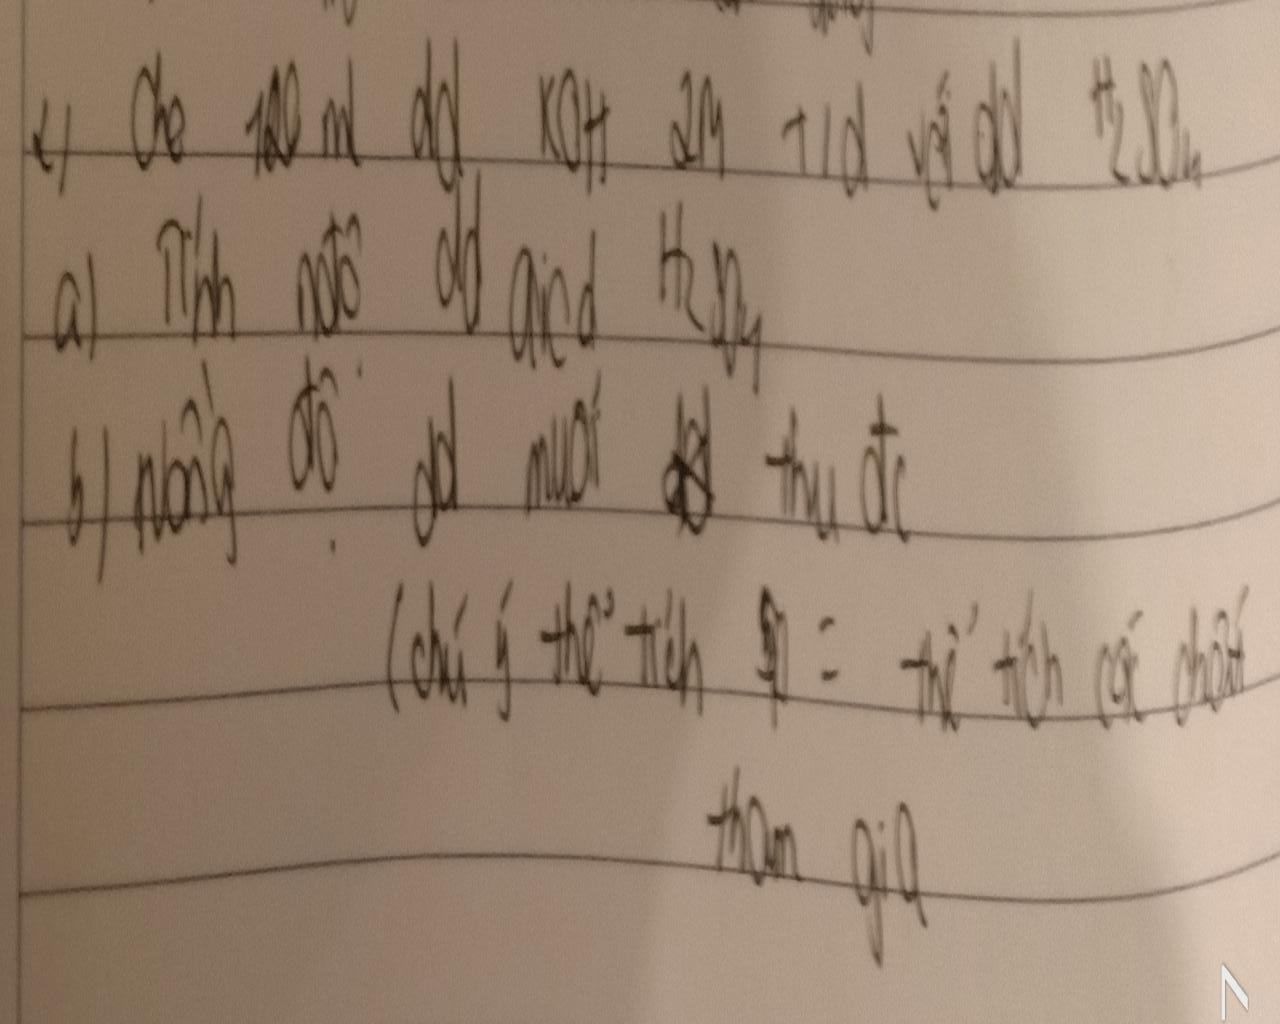 Cho 120 ml dd KOH 2M t/d với dd H2SO4
a) Tính nđộ dd axid H2SO4
b) nồng độ dd muối thu đc
(chú ý thể tích = thể tích các chất
tham gia